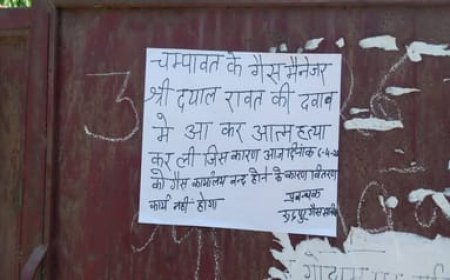 चम्पावत के गैस मैनेजर
श्री दयाल रावत की दवाब
मे आ कर आत्महत्या
कर ली जिस कारण आज दिनांक 6-4-
को गैस कार्यालय बन्द होने के कारण वितरण
कार्य नही होगा
प्रबन्धक
3